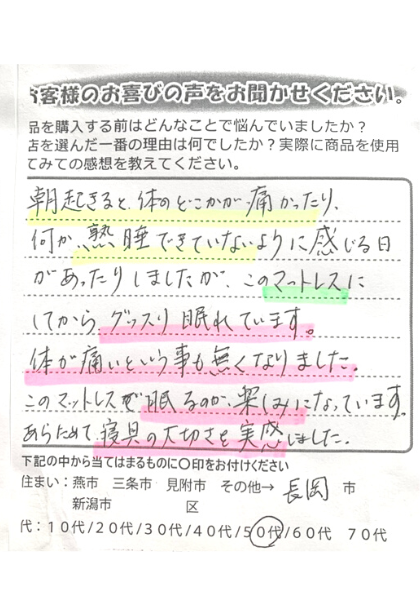 お客様のお喜びの声をお聞かせください。
品を購入する前はどんなことで悩んでいましたか？
店を選んだ一番の理由は何でしたか？実際に商品を使用
てみての感想を教えてください。
朝起きると、体のどこかが痛かったり、
何か、熟睡できていないように感じる日
があったりしましたが、このマットレスに
してから、グッスリ眠れています。
体が痛いという事も無くなりました。
このマットレスで眠るのが、楽しみになっています。
あらためて寝具の大切さを実感しました。
下記の中から当てはまるものに〇印をお付けください
住まい：燕市　三条市　見附市　その他→ 長岡 市
新潟市　区
代：１０代/２０代/３０代/４０代/５０代/６０代　７０代